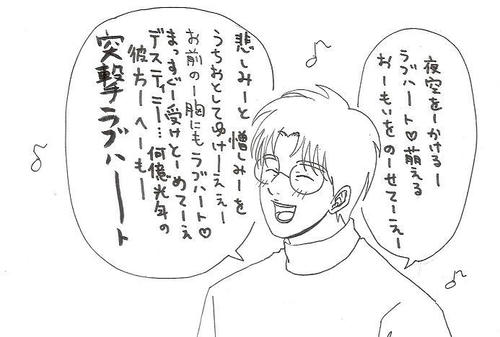 夜空をーかけるー
ラブハート♡萌える
おーもいをのーせてーえー
悲しみーと憎しみーを
うちおとしてゆけーえぇー
お前のー胸にもラブハート♡
まっすぐー受けとーめてーえ
デスティニー…何億光年の
彼方ーへーもー
突撃ラブハート